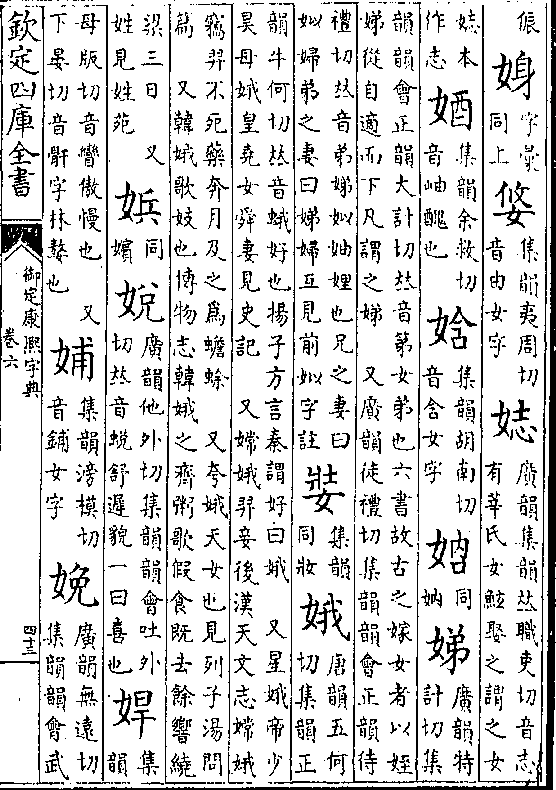 侲 㛛 字彙同上 㛜 集韻夷周切音由女字 娡 廣韻集韻𠀤職吏切音志有莘氏女鯀娶之謂之女
娡本作志 㛗 集韻余救切音岫醜也 㛔 集韻胡南切音含女字 㛟 同妠 娣 廣韻特計切集
韻韻會正韻大計切𠀤音第女弟也六書故古之嫁女者以姪娣從自適而下凡謂之娣 又廣韻徒禮切集韻韻會正韻待
禮切𠀤音弟娣姒妯娌也兄之妻曰姒婦弟之妻曰娣婦互見前姒字註 娤 集韻同妝 娥 唐韻五何切集韻正
韻牛何切𠀤音蛾好也揚子方言秦謂好曰娥 又星娥帝少昊母娥皇堯女舜妻見史記 又嫦娥羿妾後漢天文志嫦娥
竊羿不死藥奔月及之為蟾蜍 又夸娥天女也見列子湯問篇 又韓娥歌妓也博物志韓娥之齊鬻歌假食既去餘響繞
梁三日 又姓見姓苑 娦 同嬪 娧 廣韻他外切集韻韻會吐外切𠀤音蛻舒遲貌一曰喜也 娨 集韻
母版切音矕傲慢也 又下晏切音骭字林嫠也 又 㛍 集韻滂模切音鋪女字 娩 廣韻無遠切集韻韻會武
欽定四庫全書
御定康熙字典
卷六
四十三